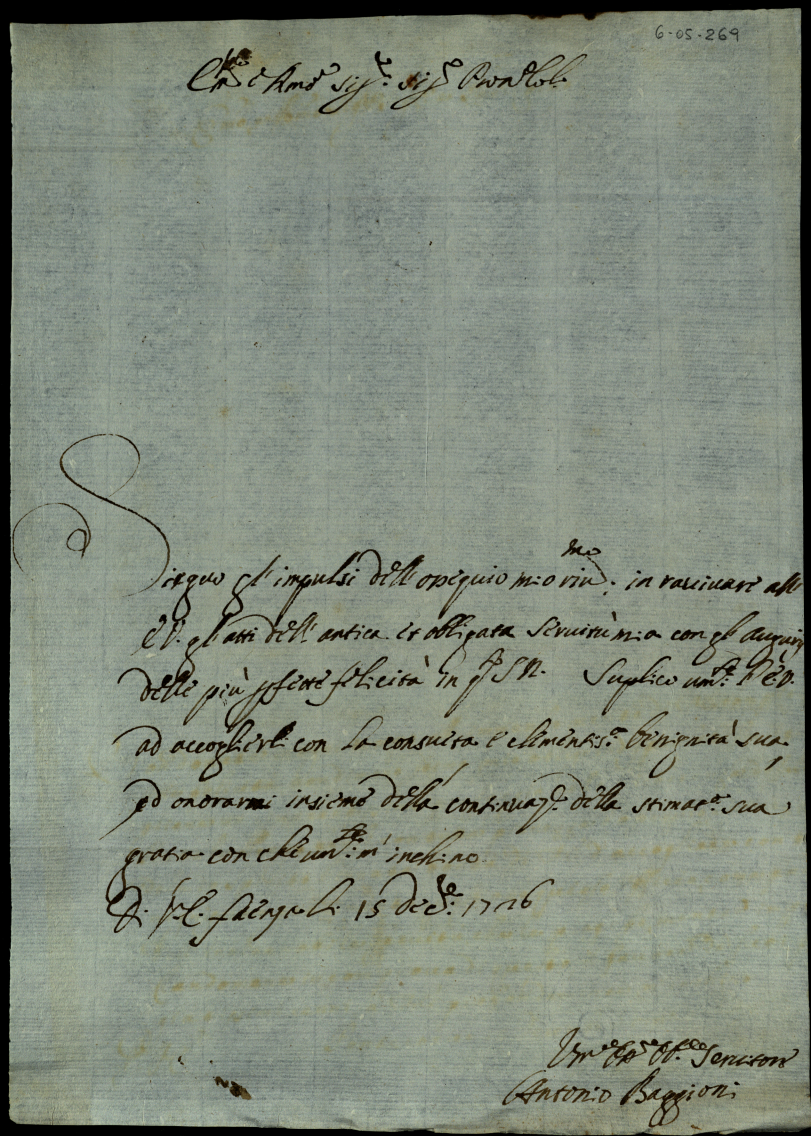 6-05-269
e Rmo Sigre Sigre Pron Col
Sieguo gl'impulsi dell'ossequio mio rivmo: in rasciuare all'
E.V. gl'atti dell'antica et obligata servitù mia con gl'augurij
delle più pfette felicità in q SN. Suplico umte: l'E.V.
ad accoglierli con la consueta e clementisa: benignità sua,
ed onorarmi insieme della continuaze: della stimata: sua
gratia con che umte: m'inchino
Di V.E. Faenza li 15 decre: 1726
Servitore
Antonio Baggioni